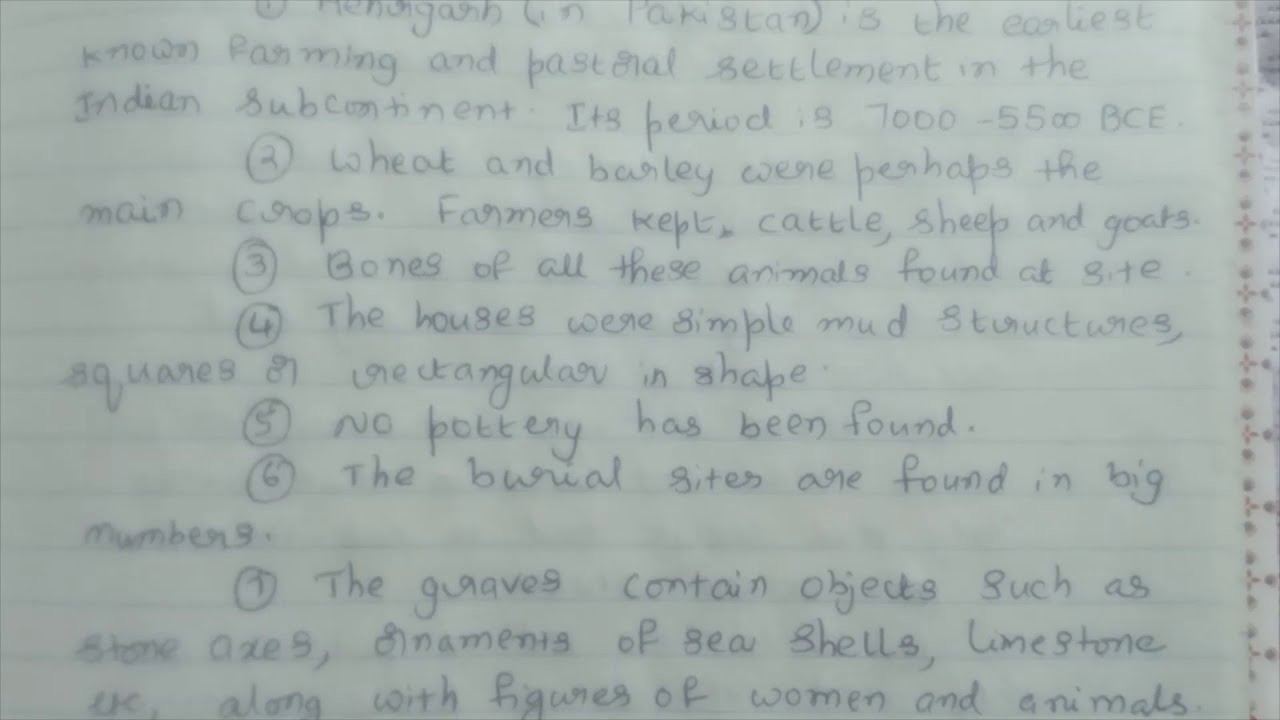 ① Mehrgarh (in Pakistan) is the earliest
known Farming and pastoral settlement in the
Indian Subcontinent. Its period is 7000 - 5500 BCE.
② Wheat and barley were perhaps the
main crops. Farmers kept, cattle, sheep and goats.
③ Bones of all these animals found at site.
④ The houses were simple mud structures,
squares or rectangular in shape.
⑤ No pottery has been found.
⑥ The burial sites are found in big
numbers.
⑦ The graves contain objects such as
stone axes, ornaments of sea shells, limestone
etc, along with figures of women and animals.